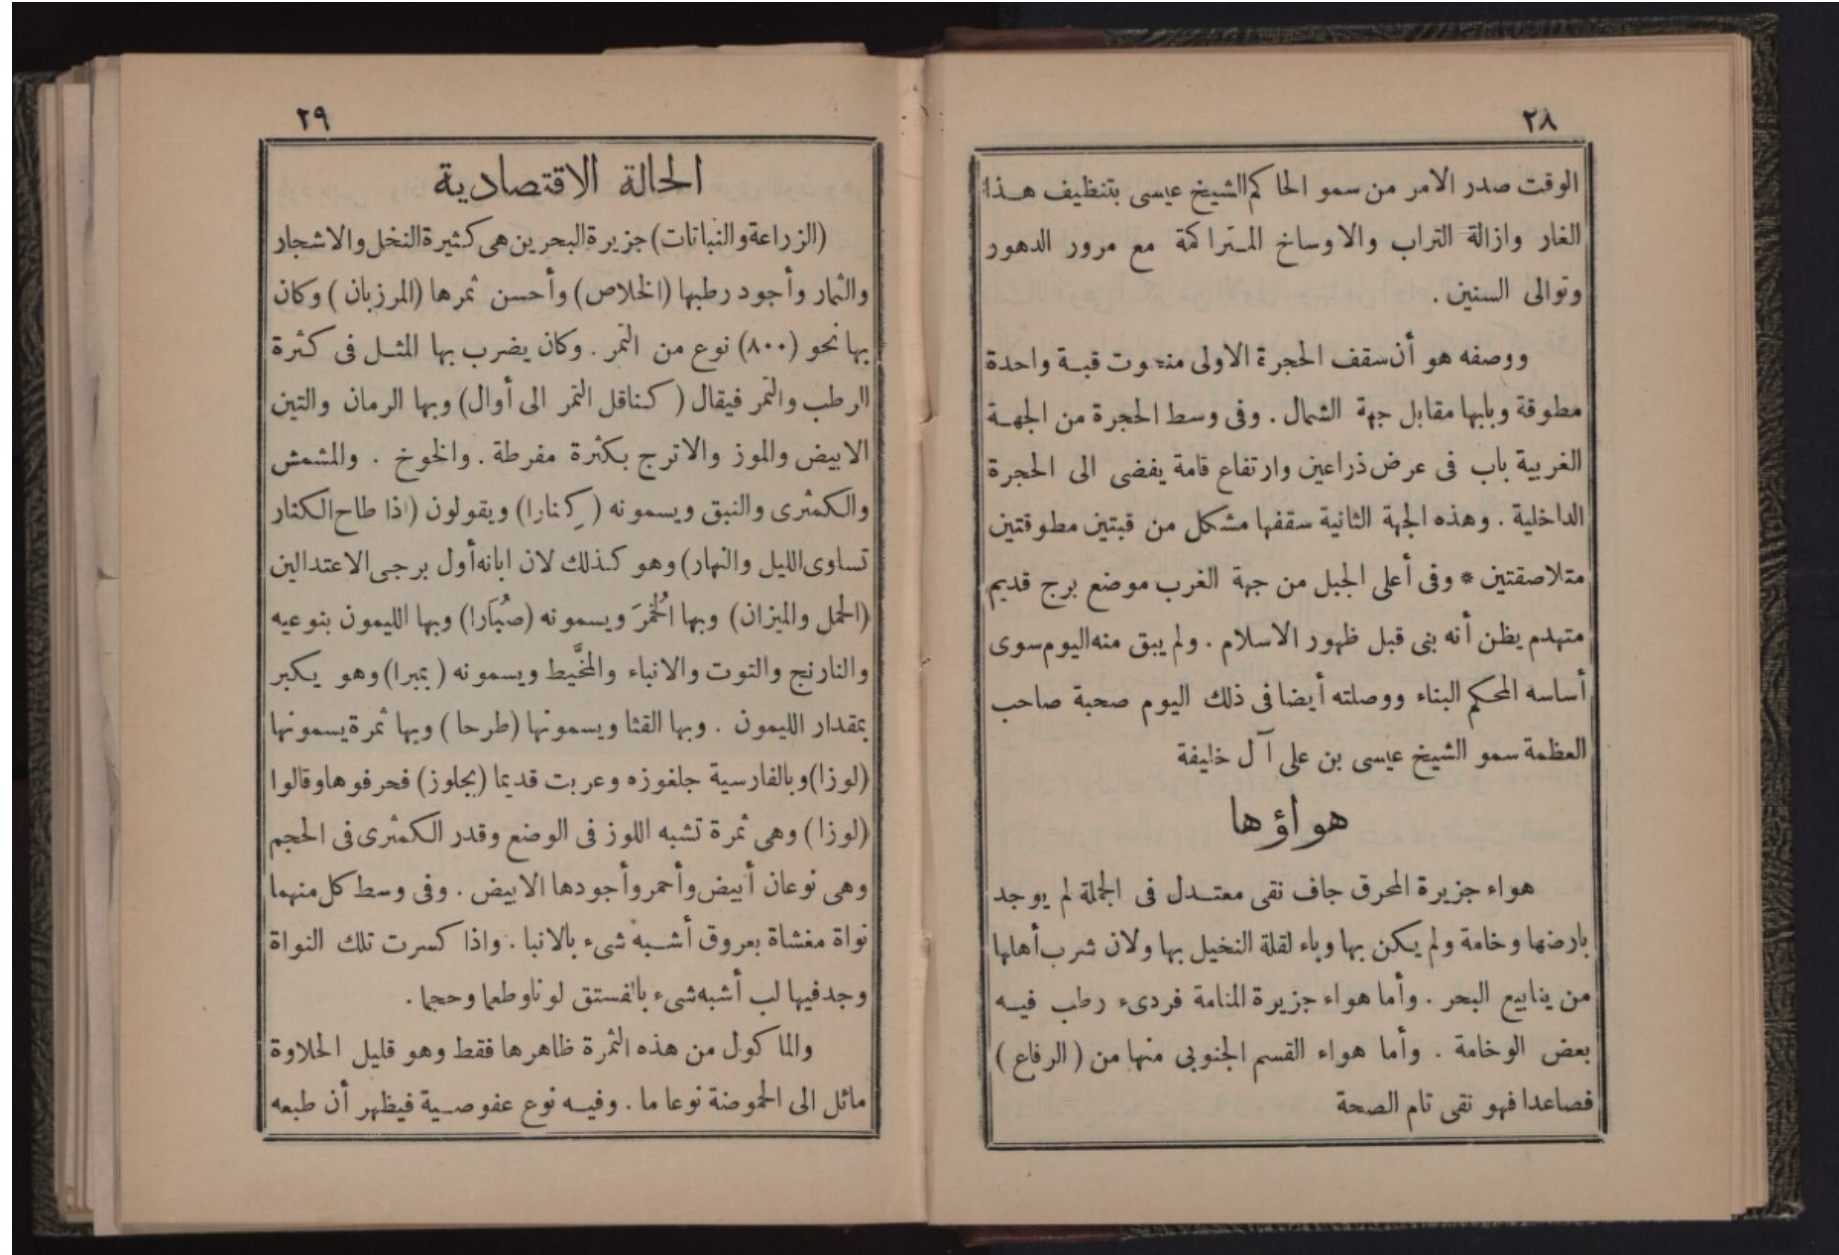 ٢٨
الوقت صدر الامر من سمو الحاكم الشيخ عيسى بتنظيف هـذا
الغار وازالة التراب والاوساخ المتراكمة مع مرور الدهور
وتوالى السنين .
ووصفه هو أن سقف الحجرة الاولى منحوت قبـة واحدة
مطوقة وبابها مقابل جهة الشمال . وفى وسط الحجرة من الجهـة
الغربية باب فى عرض ذراعين وارتفاع قامة يفضى الى الحجرة
الداخلية . وهذه الجهة الثانية سقفها مشكل من قبتين مطوقتين
متلاصقتين * وفى أعلى الجبل من جهة الغرب موضع برج قديم
متهدم يظن أنه بنى قبل ظهور الاسلام . ولم يبق منه اليوم سوى
أساسه المحكم البناء ووصلته أيضا فى ذلك اليوم صحبة صاحب
العظمة سمو الشيخ عيسى بن على آل خليفة
هواؤها
هواء جزيرة المحرق جاف نقى معتـدل فى الجملة لم يوجد
بارضها وخامة ولم يكن بها وباء لقلة النخيل بها ولان شرب أهلها
من ينابيع البحر . وأما هواء جزيرة المنامة فردىء رطب فيـه
بعض الوخامة . وأما هواء القسم الجنوبى منها من ( الرفاع )
فصاعدا فهو نقى تام الصحة
٢٩
الحالة الاقتصادية
(الزراعة والنباتات) جزيرة البحرين هى كثيرة النخل والاشجار
والثمار وأجود رطبها (الخلاص) وأحسن ثمرها (المرزبان) وكان
بها نحو (٨٠٠) نوع من التمر . وكان يضرب بها المثـل فى كثرة
الرطب والتمر فيقال ( كناقل التمر الى أوال) وبها الرمان والتين
الابيض والموز والاترج بكثرة مفرطة . والخوخ . والمشمش
والكمثرى والنبق ويسمونه (كِنارا) ويقولون (اذا طاح الكنار
تساوى الليل والنهار) وهو كـذلك لان ابانه أول برجى الاعتدالين
(الحمل والميزان) وبها الخُمَرَ ويسمونه (صُبَارا) وبها الليمون بنوعيه
والنارنج والتوت والانباء والمخَيَّط ويسمونه ( بمبرا) وهو يكبر
بمقدار الليمون . وبها القثا ويسمونها (طرحا ) وبها ثمرة يسمونها
(لوزا) وبالفارسية جلغوزه وعربت قديما (بجلوز) فحرفوها وقالوا
(لوزا) وهى ثمرة تشبه اللوز فى الوضع وقدر الكمثرى فى الحجم
وهى نوعان أبيض وأحمر وأجودها الابيض . وفى وسط كل منهما
نواة مغشاة بعروق أشـبه شىء بالانبا . واذا كسرت تلك النواة
وجد فيها لب أشبه شىء بالفستق لونا وطعما وحجما .
والماكول من هذه الثمرة ظاهرها فقط وهو قليل الحلاوة
مائل الى الحموضة نوعا ما . وفيـه نوع عفوصـية فيظهر أن طبعه